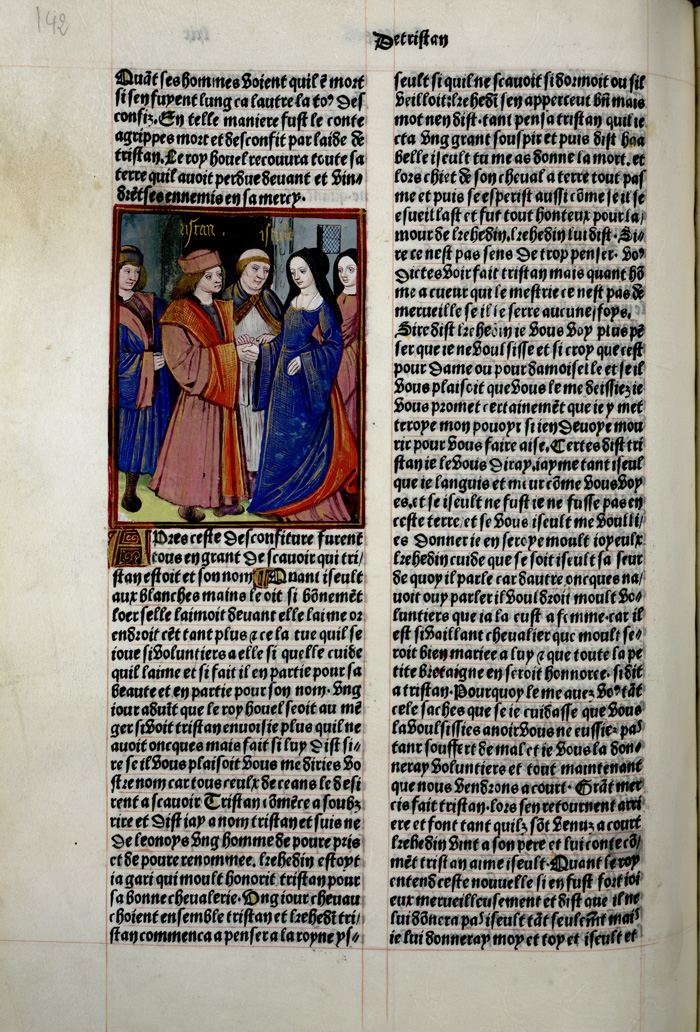 142
De tristan
Quãt ses hommes voient quil ẽ mort
si sen fuyent lung ca lautre la to⁹ des
confiz. En telle maniere fust le conte
agrippes mort et desconfit par laide de
tristan. Le roy houel recouura toute sa
terre quil auoit perdue deuant et vin-
drẽt ses ennemis en sa mercy.
istan
APres ceste desconfiture furent
tous en grant de scauoir qui tri/
stan estoit et son nom Quant iseult
aux blanches mains le oit si bõnemẽt
loer selle laimoit deuant elle laime or
endroit cẽt tant plus
ioue si voluntiers a elle si quelle cuide
quil laime et si fait il en partie pour sa
beaute et en partie pour son nom. Vng
iour aduĩt que le roy houel seoit au mẽ
ger si voit tristan enuoisie plus quil ne
auoit oncques mais fait si luy dist si-
re se il vous plaisoit vous me diries vo
stre nom car tous ceulx de ceans le desi
rent a scauoir Tristan cõmẽce a soubz
rire et dist iay a nom tristan et suis ne
de leonoys vng homme de poure pris
et de poure renommee. kehedin estoyt
ia gari qui moult honorit tristan pour
sa bonne cheualerie. Vng iour cheuau
choient ensemble tristan et kehedĩ tri/
stan commenca a penser a la royne ys/
seult si quil ne scauoit si dormoit ou sil
veilloit: kehedĩ sen apperceut bñ mais
mot nen dist. tant pensa tristan quil ie
cta vng grant souspir et puis dist haa
belle iseult tu me as donne la mort. et
lors chiet de son cheual a terre tout pas
me et puis se esperist aussi cõme se il se
esueillast et fut tout honteux pour la/
mour de kehedin. kehedin lui dist. Si/
re ce nest pas sens de trop penser. vo⁹
dictes voir fait tristan mais quant hõ
me a cueur qui le mestrie ce nest pas de
merueille se il ie serre aucune foys.
Sire dist kehedin ie vous voy plus pẽ
ser que ie ne voulsisse et si croy que cest
pour dame ou pour damoiselle et se il
vous plaisoit que vous le me deissiez ie
vous promet certainemẽt que ie y met
troye mon pouoyr si ien deuoye mou
rir pour vous faire aise. Certes dist tri
stan ie le vous diray. iayme tant iseul
que ie languis et meur cõme vous voy
es. et se iseult ne fust ie ne fusse pas en
ceste terre. et se vous iseult me vouli/
es donner ie en seroye moult ioyeulx
kehedin cuide que se soit iseult sa seur
de quoy il parle car dautre oncques na/
uoit ouy parler il vouldroit moult vo/
luntiers que ia la eust a femme. car il
est si vaillant cheualier que moult se⸗
roit bien mariee a luy ⁊ que toute la pe
tite bretaigne en seroit honnoree. si dit
a tristan. Pourquoy le me auez vo⁹ tãt
cele saches que se ie cuidasse que vous
la voulsissies anoir vous ne eussiez pas
tant souffert de mal et ie vous la don⸗
neray voluntiers et tout maintenant
que nous vendrons a court. Grãt mer
cis fait tristan. lors sen retournent arri
ere et font tant quilz sõt venuz a court
kehedin vint a son pere et lui conte cõ/
mẽt tristan aime iseult. Quant le roy
entend ceste nouuelle si en fust fort ioi
eux merueilleusement et dist que il ne
lui dõnera pas iseult tãt seulemẽt mais
ie lui donneray moy et toy et iseult et